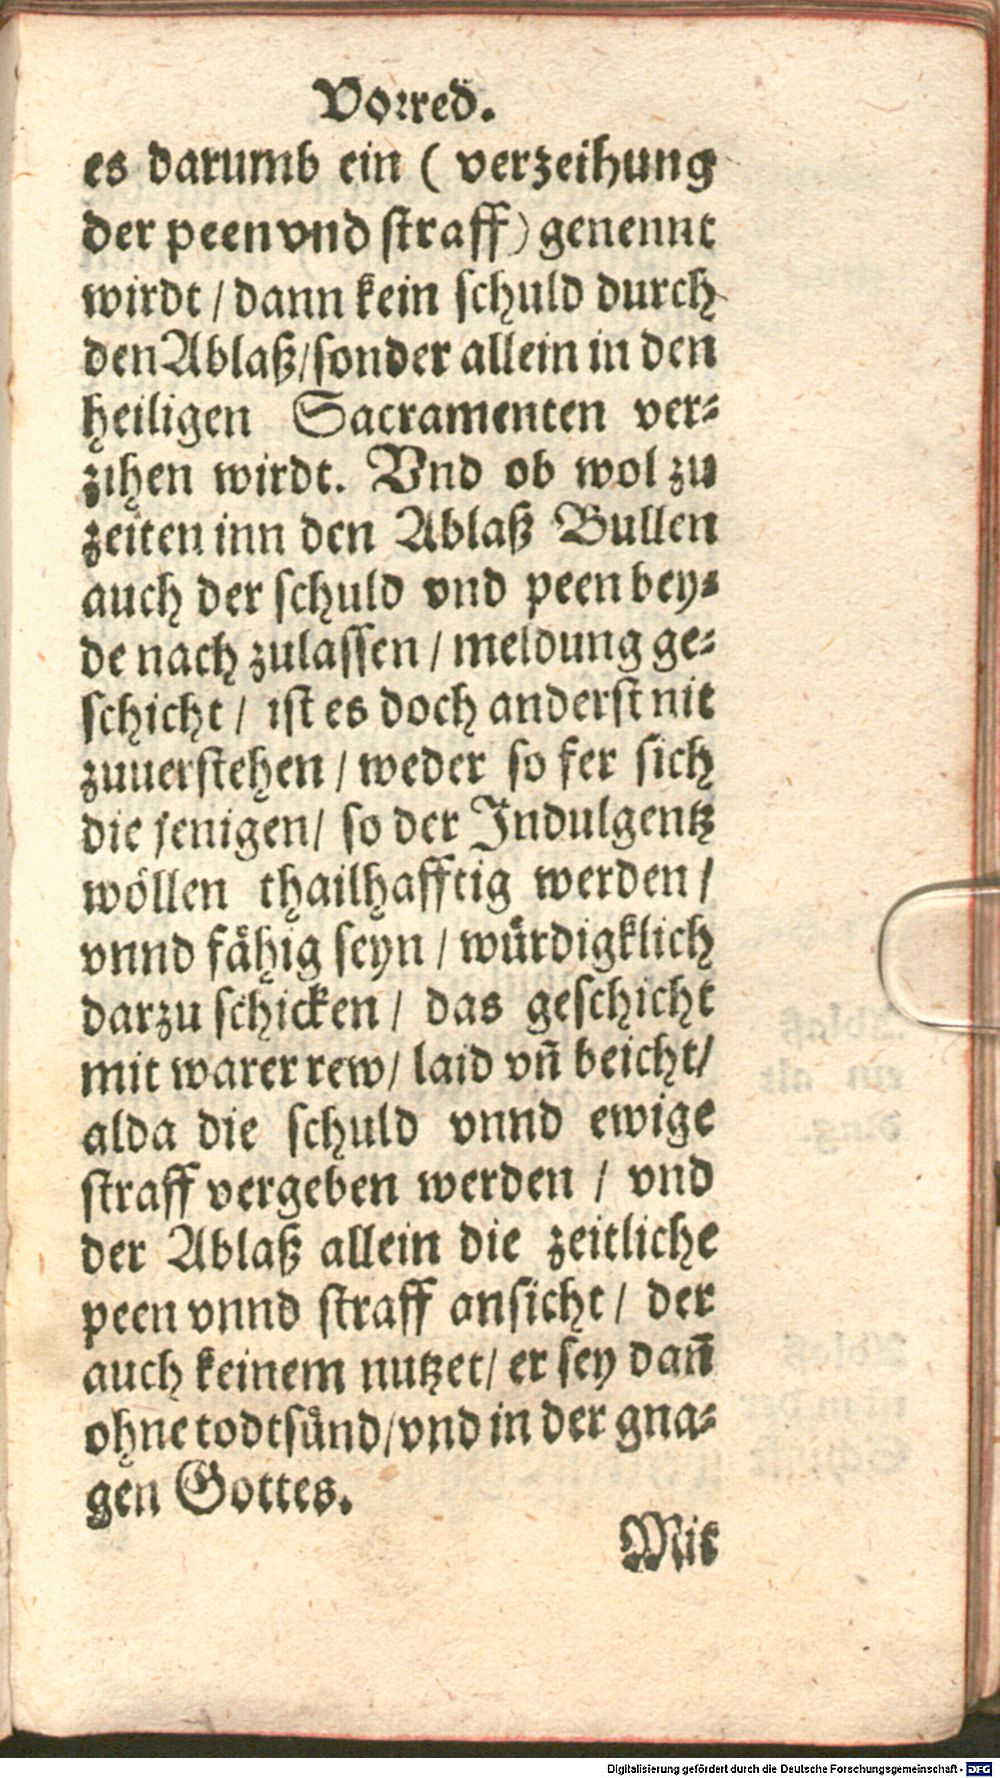 Vorred.
es darumb ein ( verzeihung
der peen vnd straff) genennt
wirdt / dann kein schuld durch
den Ablaß / sonder allein in den
heiligen Sacramenten ver-
zihen wirdt. Vnd ob wol zu
zeiten inn den Ablaß Bullen
auch der schuld vnd peen bey-
de nach zulassen / meldung ge-
schicht / ist es doch anderst nit
zuuerstehen / weder so fer sich
die jenigen / so der Indulgentz
wöllen thailhafftig werden /
vnnd fähig seyn / würdigklich
darzu schicken / das geschicht
mit warer rew / laid vn̄ beicht /
alda die schuld vnnd ewige
straff vergeben werden / vnd
der Ablaß allein die zeitliche
peen vnnd straff ansicht / der
auch keinem nutzet / er sey dan̄
ohne todtsünd / vnd in der gna-
gen Gottes.
Mit
Digitalisierung gefördert durch die Deutsche Forschungsgemeinschaft - DFG